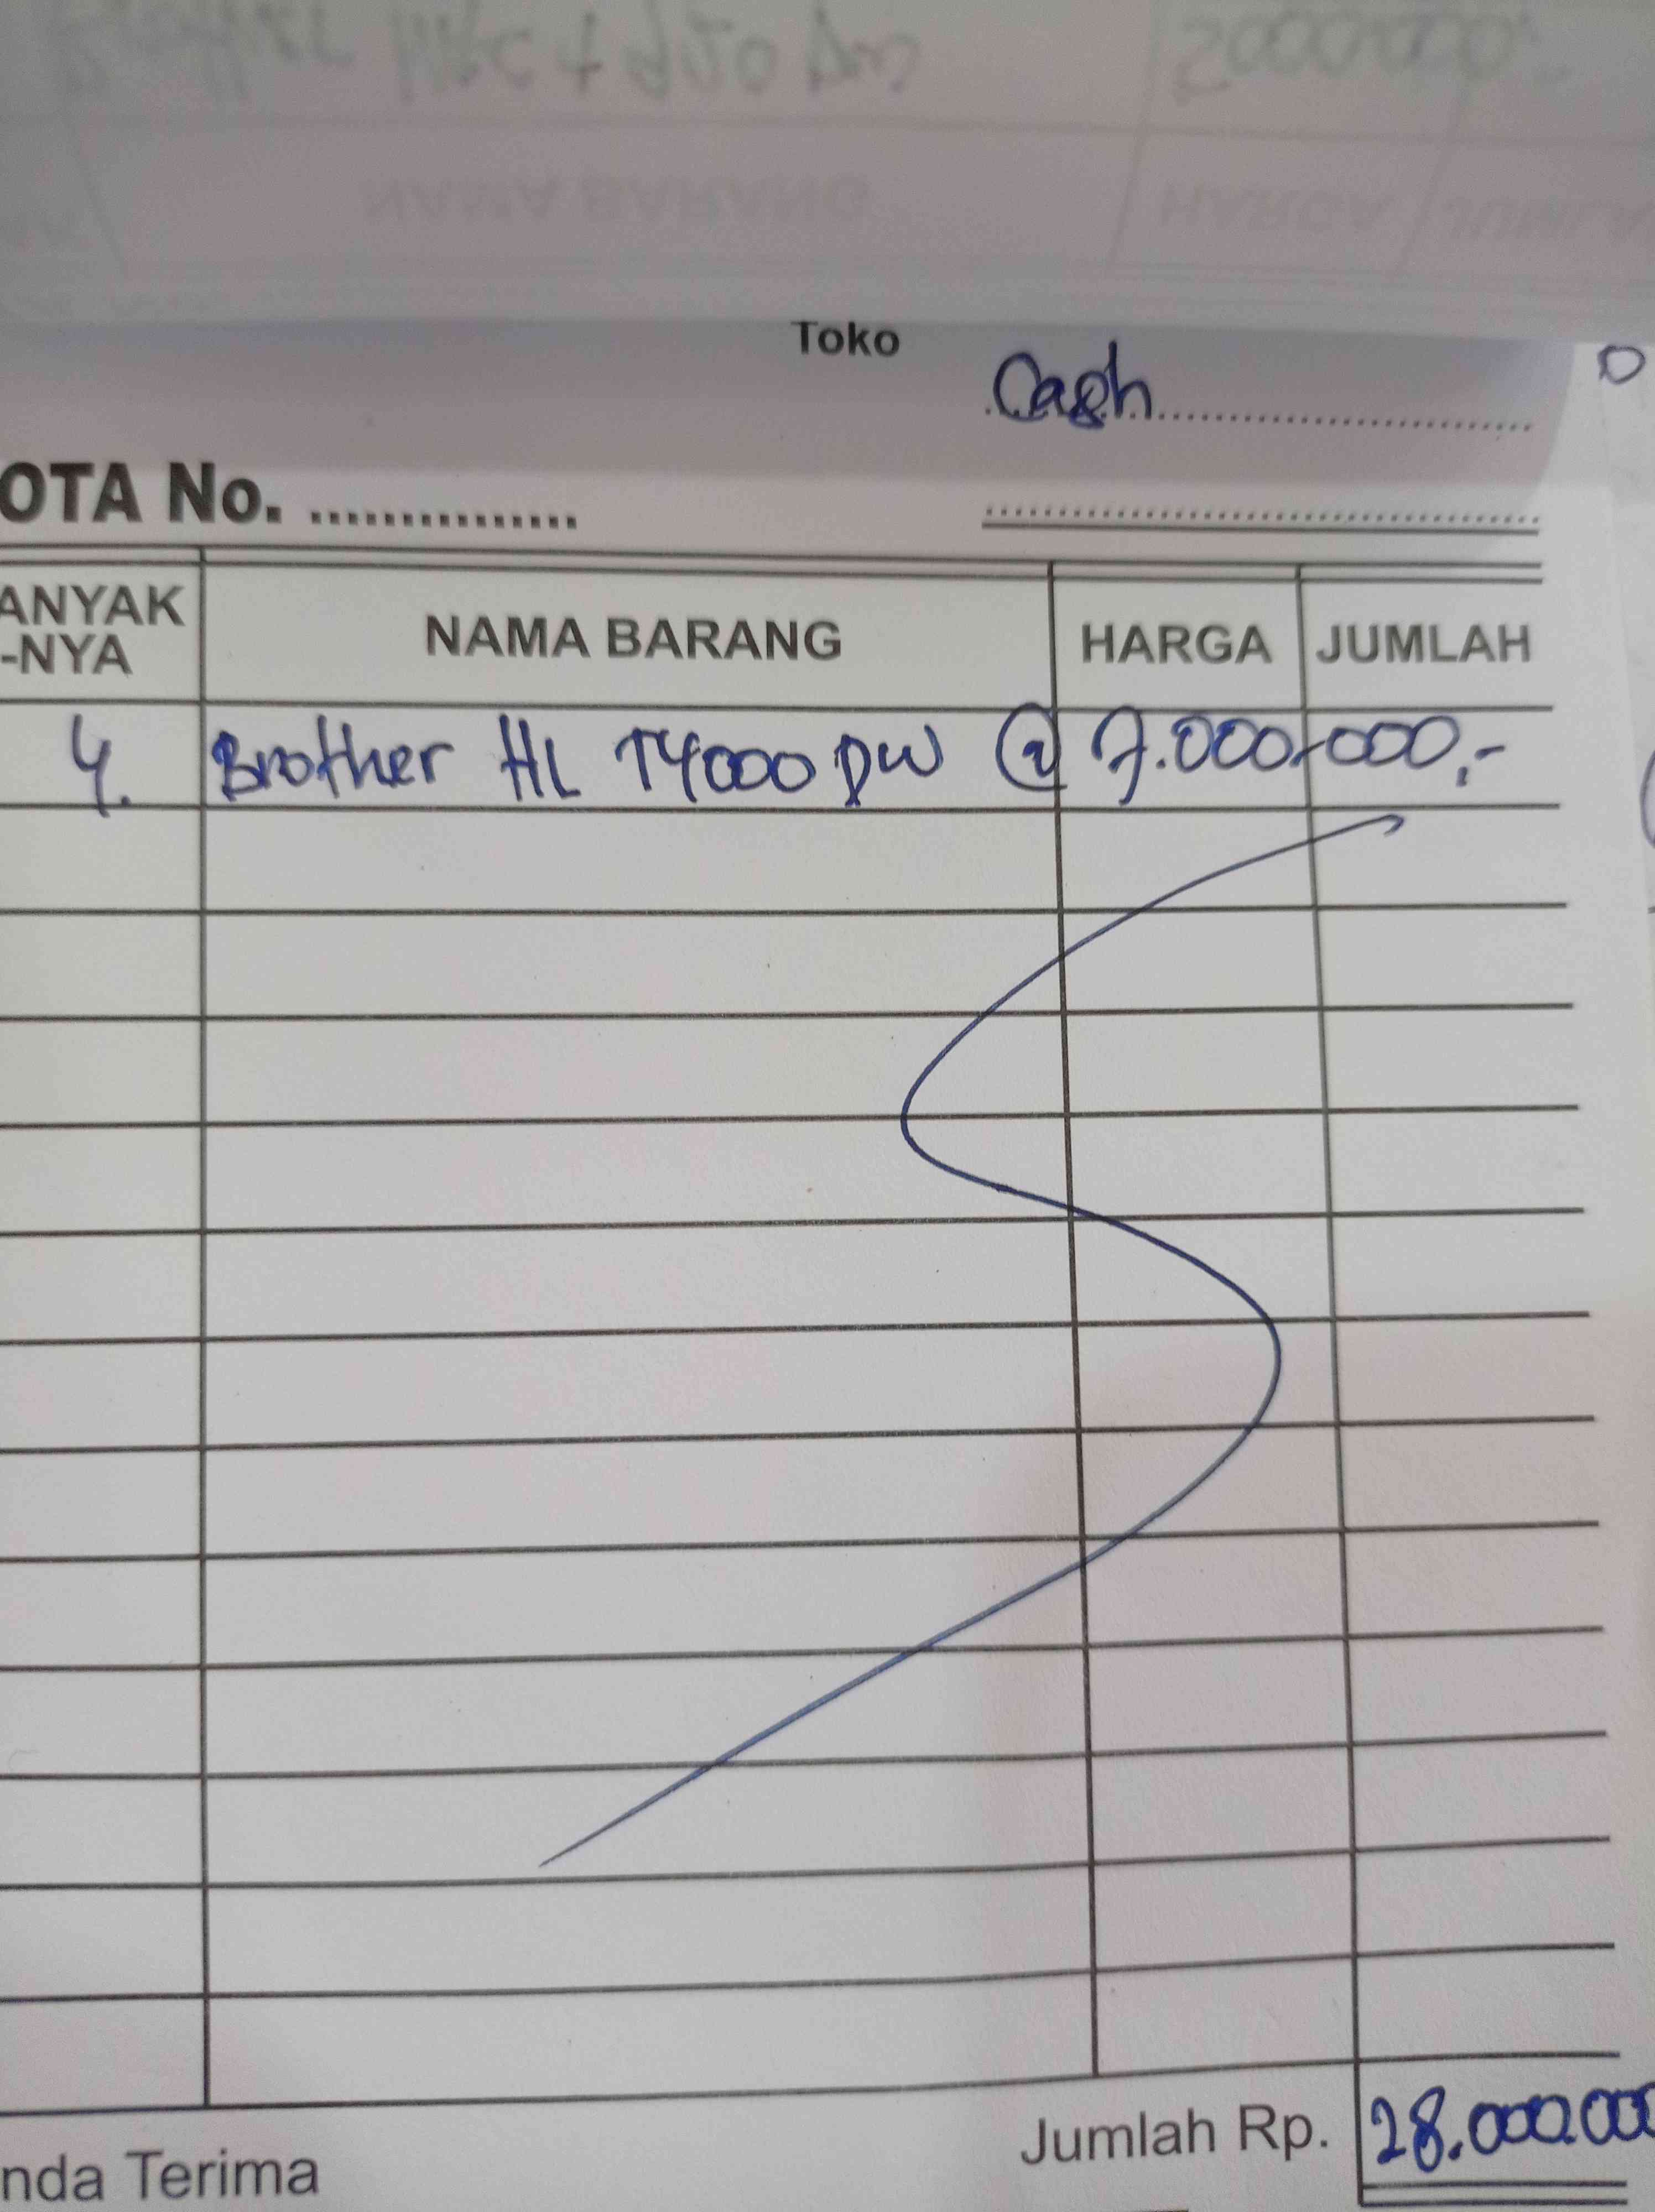 NAMA BARANG
HARGA JUMLA
Toko
Cash
OTA No. ...............
ANYAK
-NYA
NAMA BARANG
HARGA
JUMLAH
4. Brother HL T4000 DW @ 7.000.000,-
Jumlah Rp. 28.000.000
nda Terima